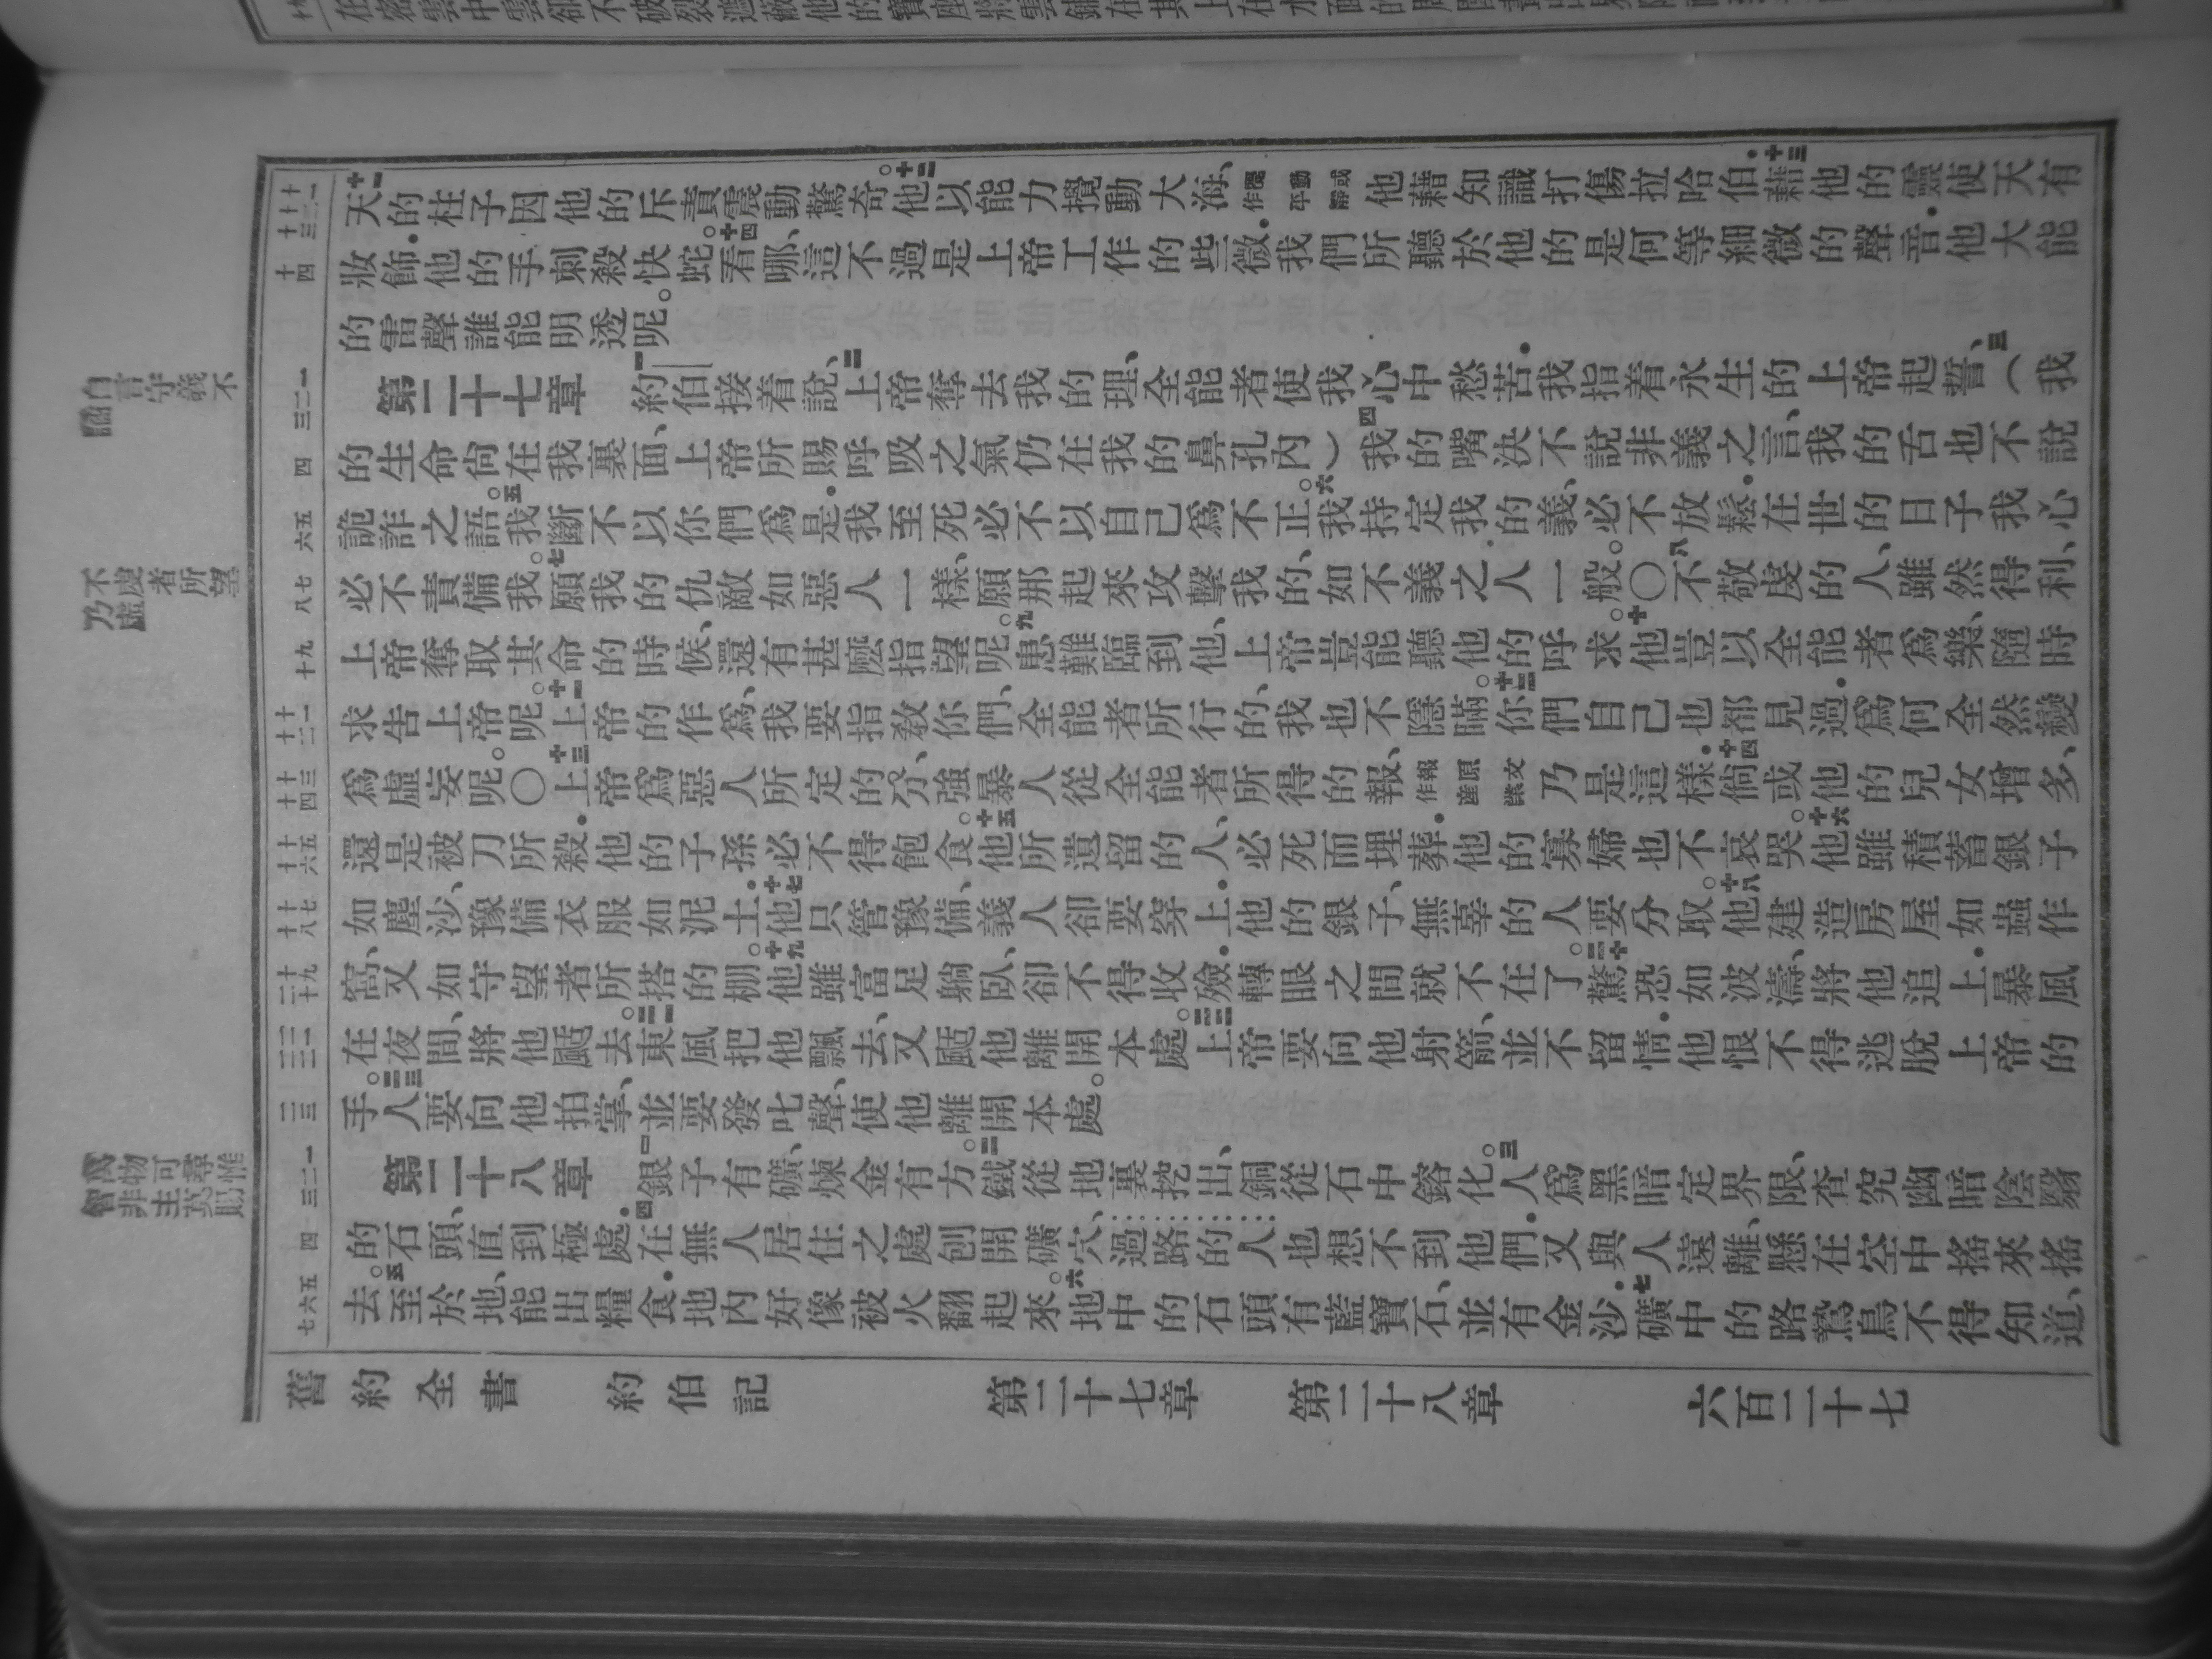 天十一的柱子因他的斥責震動驚奇。十二他以能力攪動大海、攪動或作平靜他藉知識打傷拉哈伯．十三藉他的靈使天有
妝飾．他的手刺殺快蛇。十四看哪、這不過是上帝工作的些微．我們所聽於他的是何等細微的聲音．他大能
的雷聲誰能明透呢。
第二十七章 一約伯接着說、二上帝奪去我的理、全能者使我心中愁苦．我指着永生的上帝起誓、三（我
的生命尙在我裏面、上帝所賜呼吸之氣仍在我的鼻孔內）四我的嘴決不說非義之言、我的舌也不說
詭詐之語。五我斷不以你們爲是．我至死必不以自己爲不正。六我持定我的義、必不放鬆．在世的日子我心
必不責備我。七願我的仇敵如惡人一樣、願那起來攻擊我的、如不義之人一般。〇八不敬虔的人、雖然得利、
上帝奪取其命的時候、還有甚麽指望呢。九患難臨到他、上帝豈能聽他的呼求。十他豈以全能者爲樂、隨時
求告上帝呢。十一上帝的作爲、我要指教你們、全能者所行的、我也不隱瞞。十二你們自己也都見過．爲何全然變
爲虛妄呢。〇十三上帝爲惡人所定的分、強暴人從全能者所得的報、報原文作產業乃是這樣．十四倘或他的兒女增多、
還是被刀所殺．他的子孫必不得飽食。十五他所遺留的人、必死而埋葬．他的寡婦也不哀哭。十六他雖積蓄銀子
如塵沙、豫備衣服如泥土．十七他只管豫備、義人卻要穿上．他的銀子、無辜的人要分取。十八他建造房屋如蟲作
窩、又如守望者所搭的棚。十九他雖富足躺臥、卻不得收殮．轉眼之間就不在了。二十驚恐如波濤、將他追上．暴風
在夜間、將他颳去。二一東風把他飄去、又颳他離開本處。二二上帝要向他射箭、並不留情．他恨不得逃脫上帝的
手。二三人要向他拍掌、並要發叱聲、使他離開本處。
第二十八章 一銀子有礦、煉金有方。二鐵從地裏挖出、銅從石中鎔化。三人爲黑暗定界限、查究幽暗陰翳
的石頭、直到極處．四在無人居住之處刨開礦穴、過路的人也想不到他們．又與人遠離、懸在空中搖來搖
去。五至於地、能出糧食．地內好像被火翻起來。六地中的石頭有藍寶石、並有金沙．七礦中的路鷙鳥不得知道、
自言守義不
詘
不虔者所望
乃虛
萬物可尋惟
智非主莫賜
舊約全書 約伯記 第二十七章 第二十八章 六百二十七